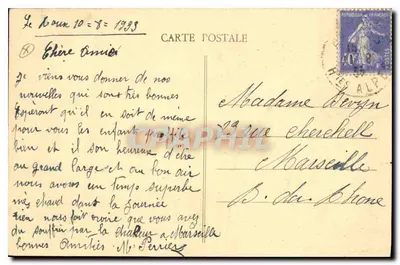 Le Roux 10-8-1933
CARTE POSTALE
Chère Amie
Je viens vous donner de nos
nouvelles qui sont très bonnes
espéront qu'il en soit de même
pour vous les enfants profite
bien et il son heureux d'etre
au grand large et au bon air
nous avons un temps superbe
chaud dans la journée
rien nous fait croire que vous avez
du souffrir par la chaleur a Marseille
bonnes Amitiés M. Perrier
Madame
rue cherchell
Marseille
B. du Rhone
ALP